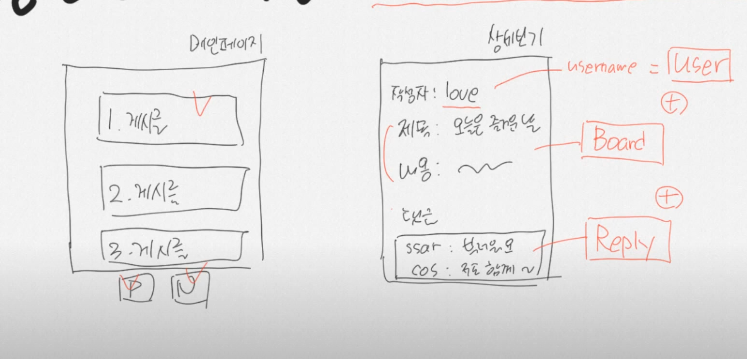 메인페이지
1. 게시글
2. 게시글
3. 게시글
P N
상세보기
작성자 : love
username = User
+
제목 : 오늘은 즐거운 날
내용 :
Board
+
댓글
ssar : 부러워요
Reply
cos : 저도 함께